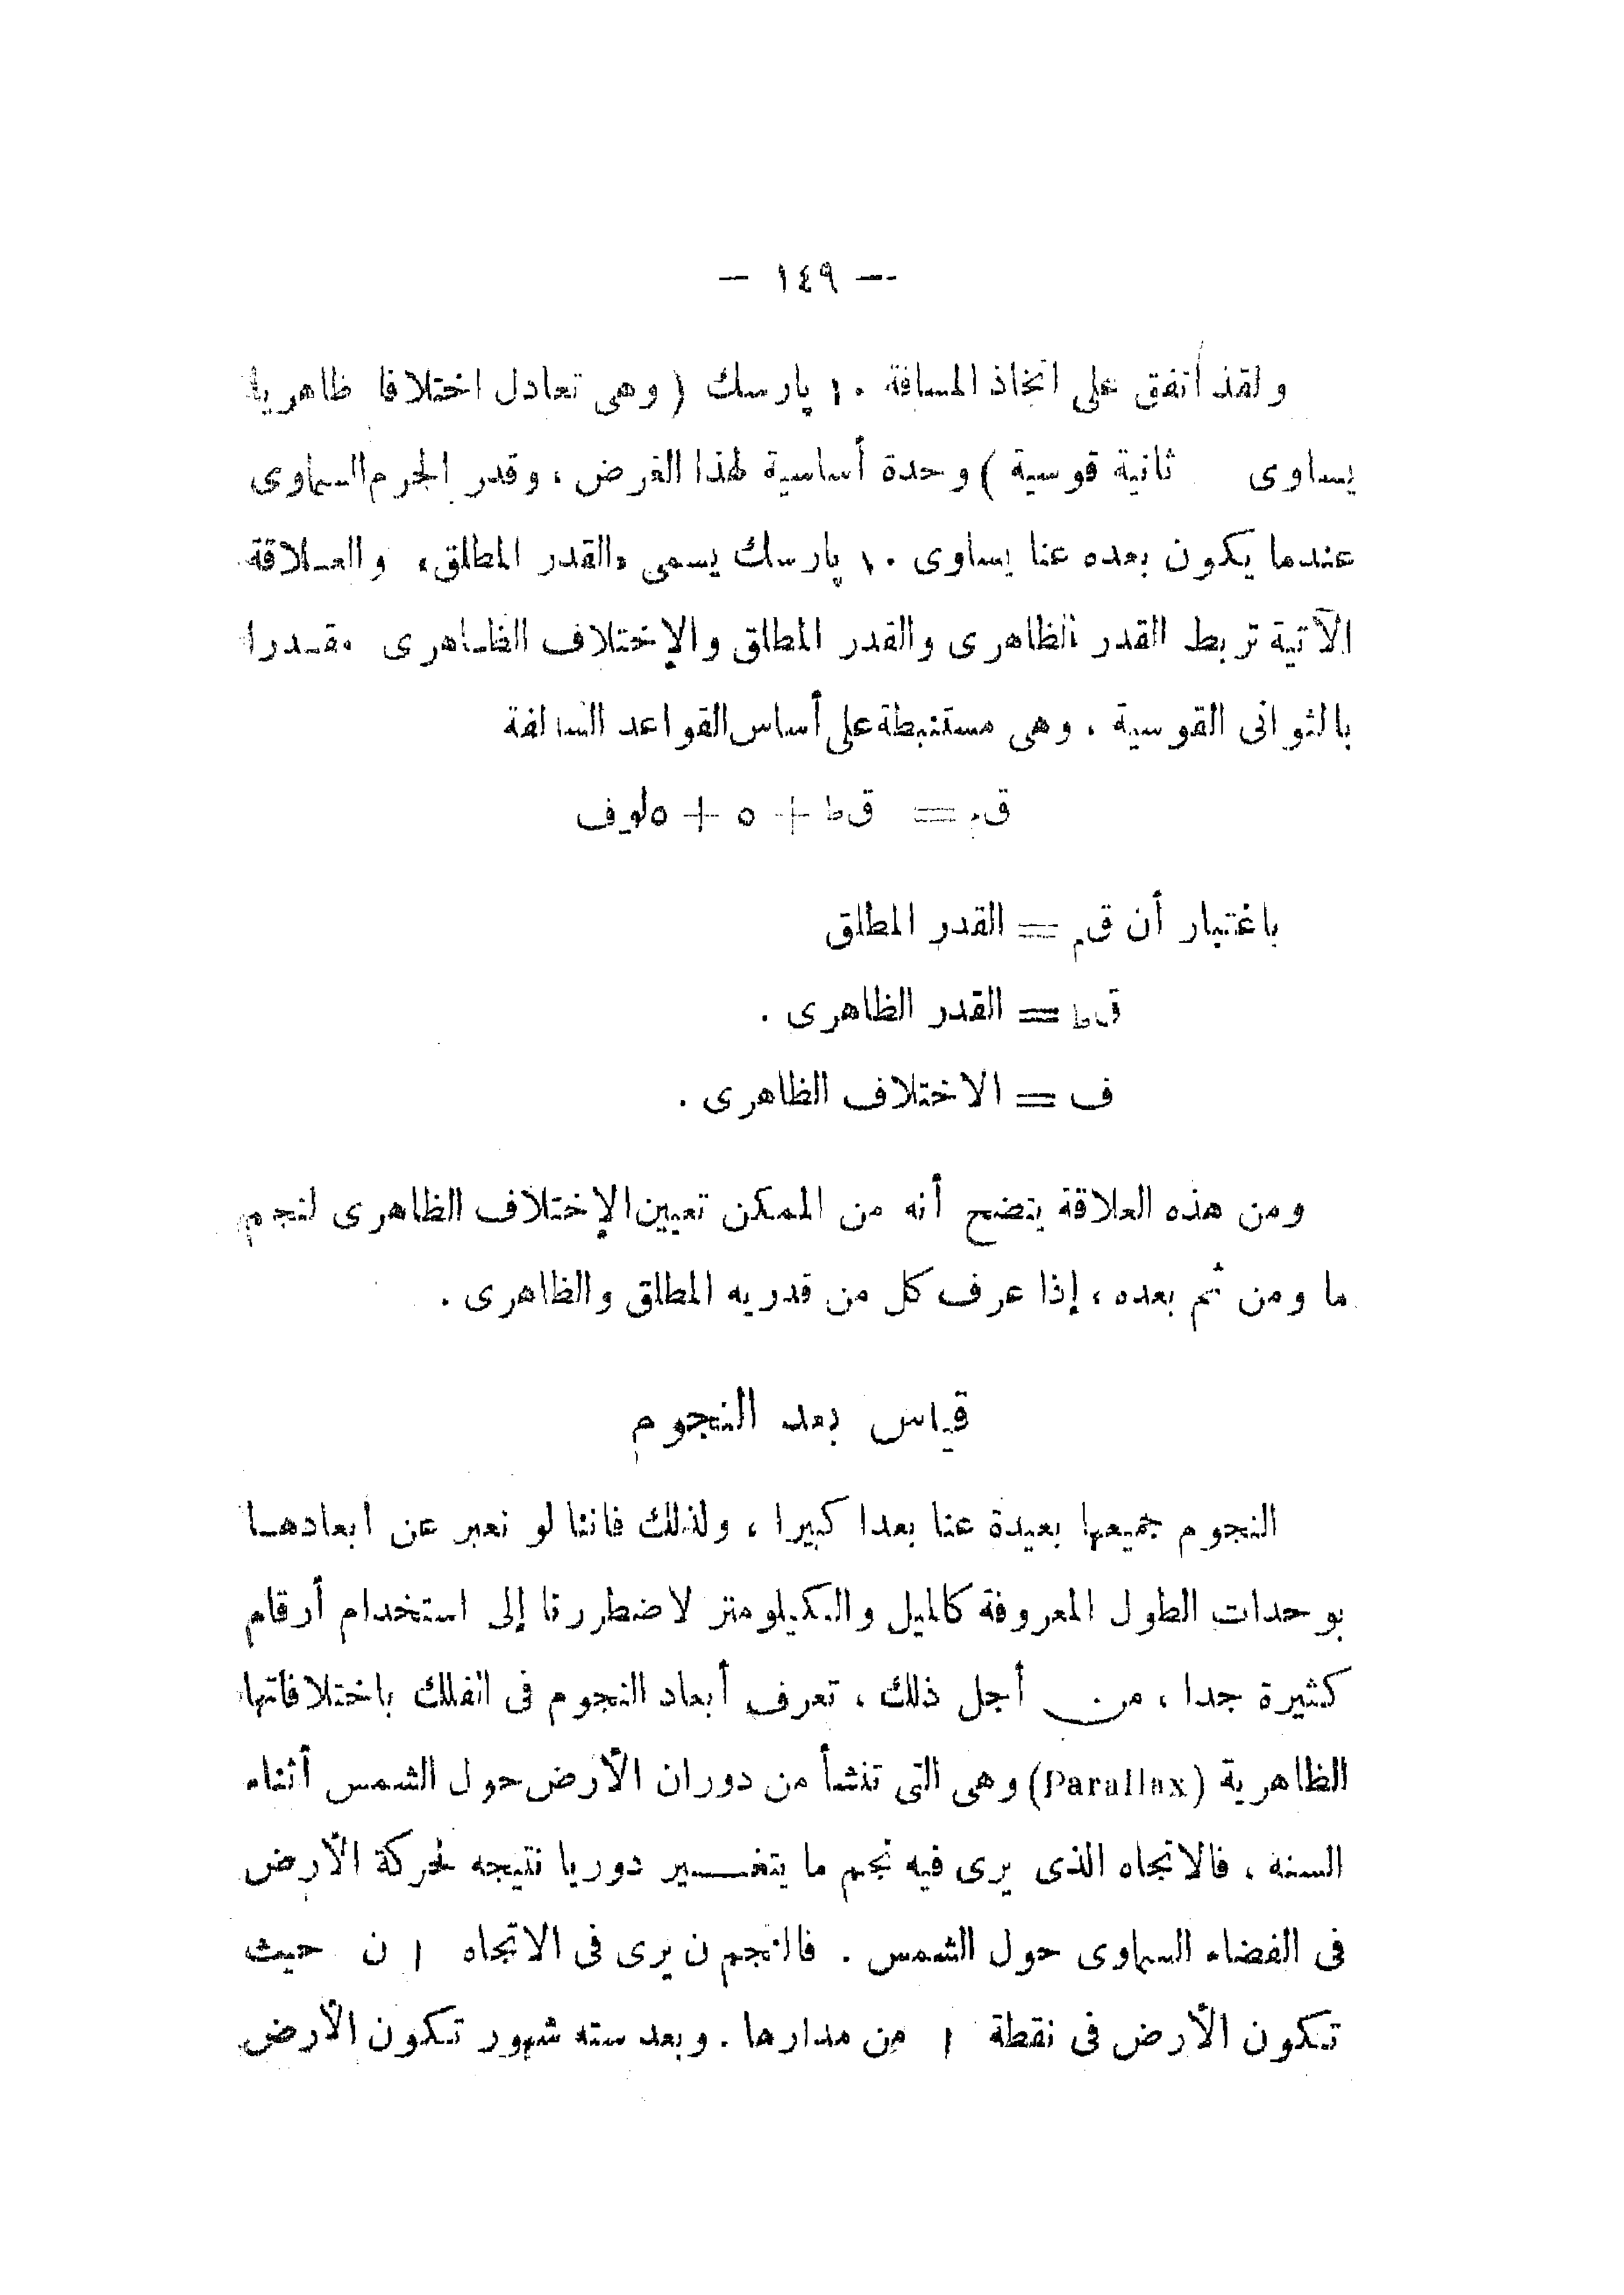 — ١٤٩ —
ولقد أتفق على اتخاذ المسافة ١٠ پارسك ( وهى تعادل اختلافا ظاهريا
يساوى ثانية قوسية ) وحدة أساسية لهذا الغرض ، وقدر الجرم السماوى
عندما يكون بعده عنا يساوى ١٠ پارسك يسمى «القدر المطلق» والعـلاقة
الآتية تربط القدر الظاهرى والقدر المطلق والإختلاف الظـاهرى مقـدرا
بالثوانى القوسية ، وهى مستنبطة على أساس القواعد السالفة
قم = قط + ٥ + ٥لوف
باعتبار أن قم = القدر المطلق
قط = القدر الظاهرى .
ف = الاختلاف الظاهرى .
ومن هذه العلاقة يتضح أنه من الممكن تعيين الإختلاف الظاهرى لنجم
ما ومن ثم بعده ، إذا عرف كل من قدريه المطلق والظاهرى .
قياس بعد النجوم
النجوم جميعها بعيدة عنا بعدا كبيرا ، ولذلك فاننا لو نعبر عن ابعادهـا
بوحدات الطول المعروفة كالميل والكيلو متر لاضطررنا إلى استخدام أرقام
كثيرة جدا ، من أجل ذلك ، تعرف أبعاد النجوم فى الفلك باختلافاتها
الظاهرية (Parallax) وهى التى تنشأ من دوران الأرض حول الشمس أثناء
السنه ، فالاتجاه الذى يرى فيه نجم ما يتغـــير دوريا نتيجه لحركة الأرض
فى الفضاء السماوى حول الشمس . فالنجم ن يرى فى الاتجاه ا ن حيث
تكون الأرض فى نقطة ا من مدارها . وبعد سته شهور تكون الأرض